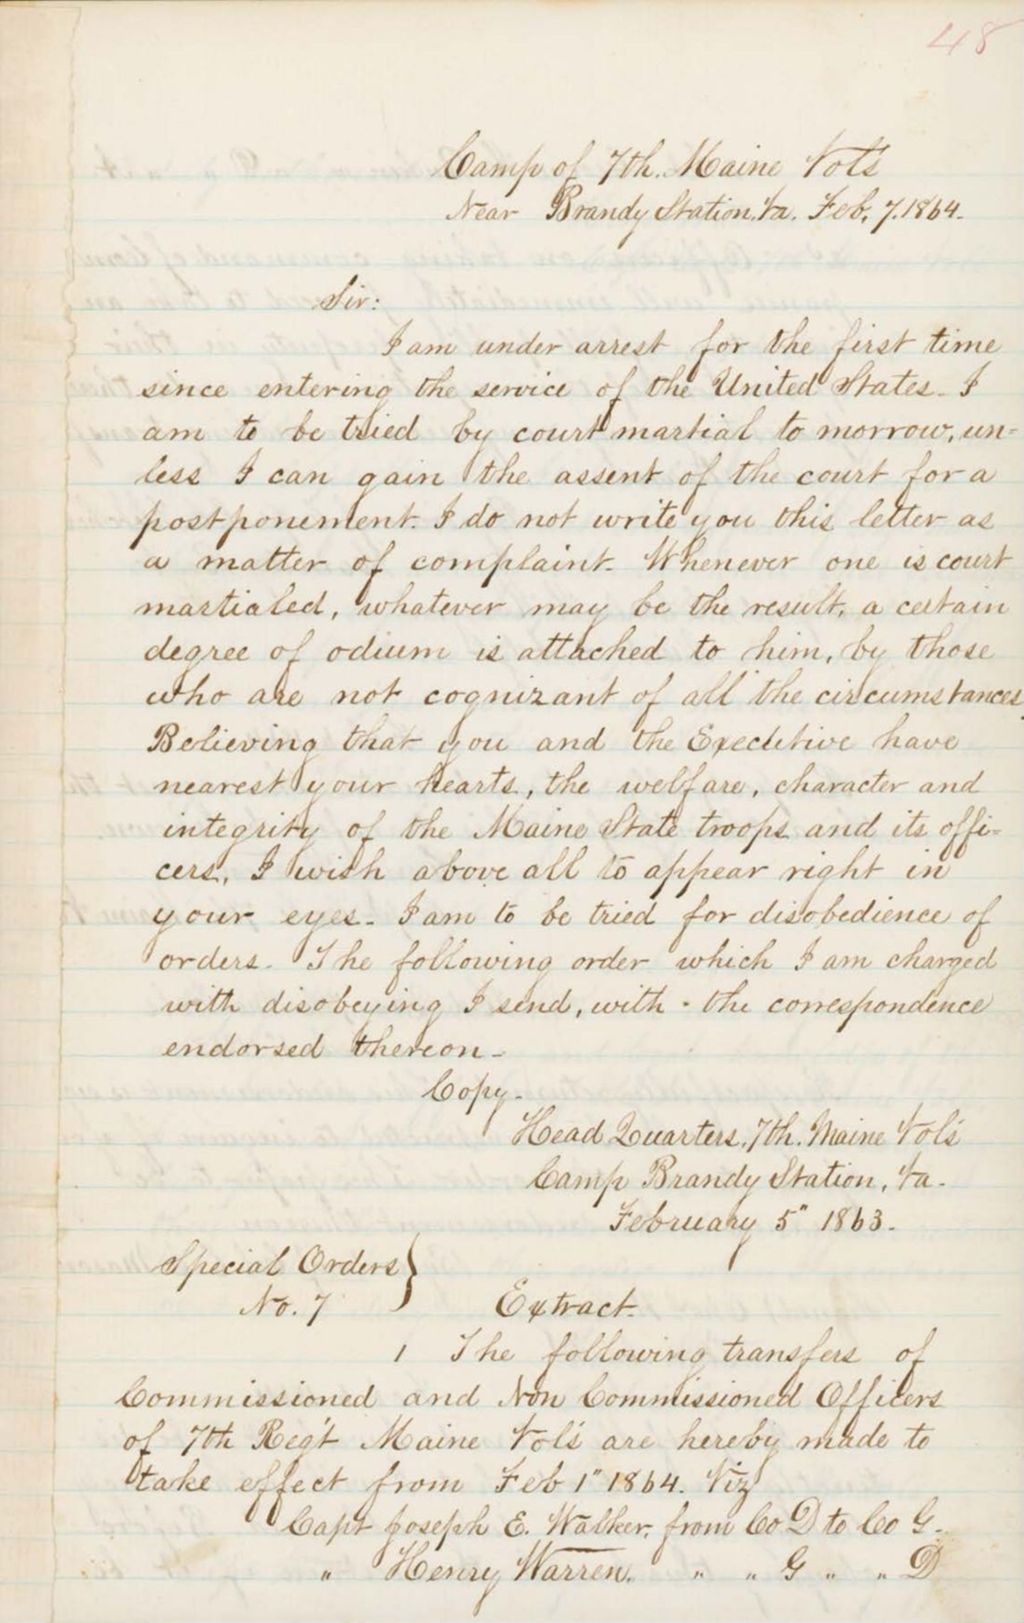 48
Camp of 7th. Maine Vols
Near Brandy Station, Va. Feb, 7. 1864.
Sir:
I am under arrest for the first time
since entering the service of the United States. I
am to be tried by court martial to morrow, un=
less I can gain the assent of the court for a
postponement. I do not write you this letter as
a matter of complaint. Whenever one is court
martialed, whatever may be the result, a certain
degree of odium is attached to him, by those
who are not cognizant of all the circumstances.
Believing that you and the Executive have
nearest your hearts, the welfare, character and
integrity of the Maine State troops and its offi=
cers, I wish above all to appear right in
your eyes. I am to be tried for disobedience of
orders. The following order which I am charged
with disobeying I send, with the correspondence
endorsed thereon-
Copy.
Head Quarters, 7th. Maine Vols
Camp Brandy Station, Va.
February 5" 1863.
Special Orders }
No. 7
Extract.
1 The following transfers of
Commissioned and Non Commissioned Officers
of 7th Reg't Maine Vols are hereby made to
take effect from Feb 1" 1864. Viz
Capt Joseph E. Walker, from Co D to Co G.
" Henry Warren. " " G " " D